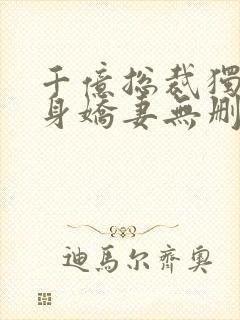 千億總裁獨
身嬌妻無刪
迪馬尔齊奧